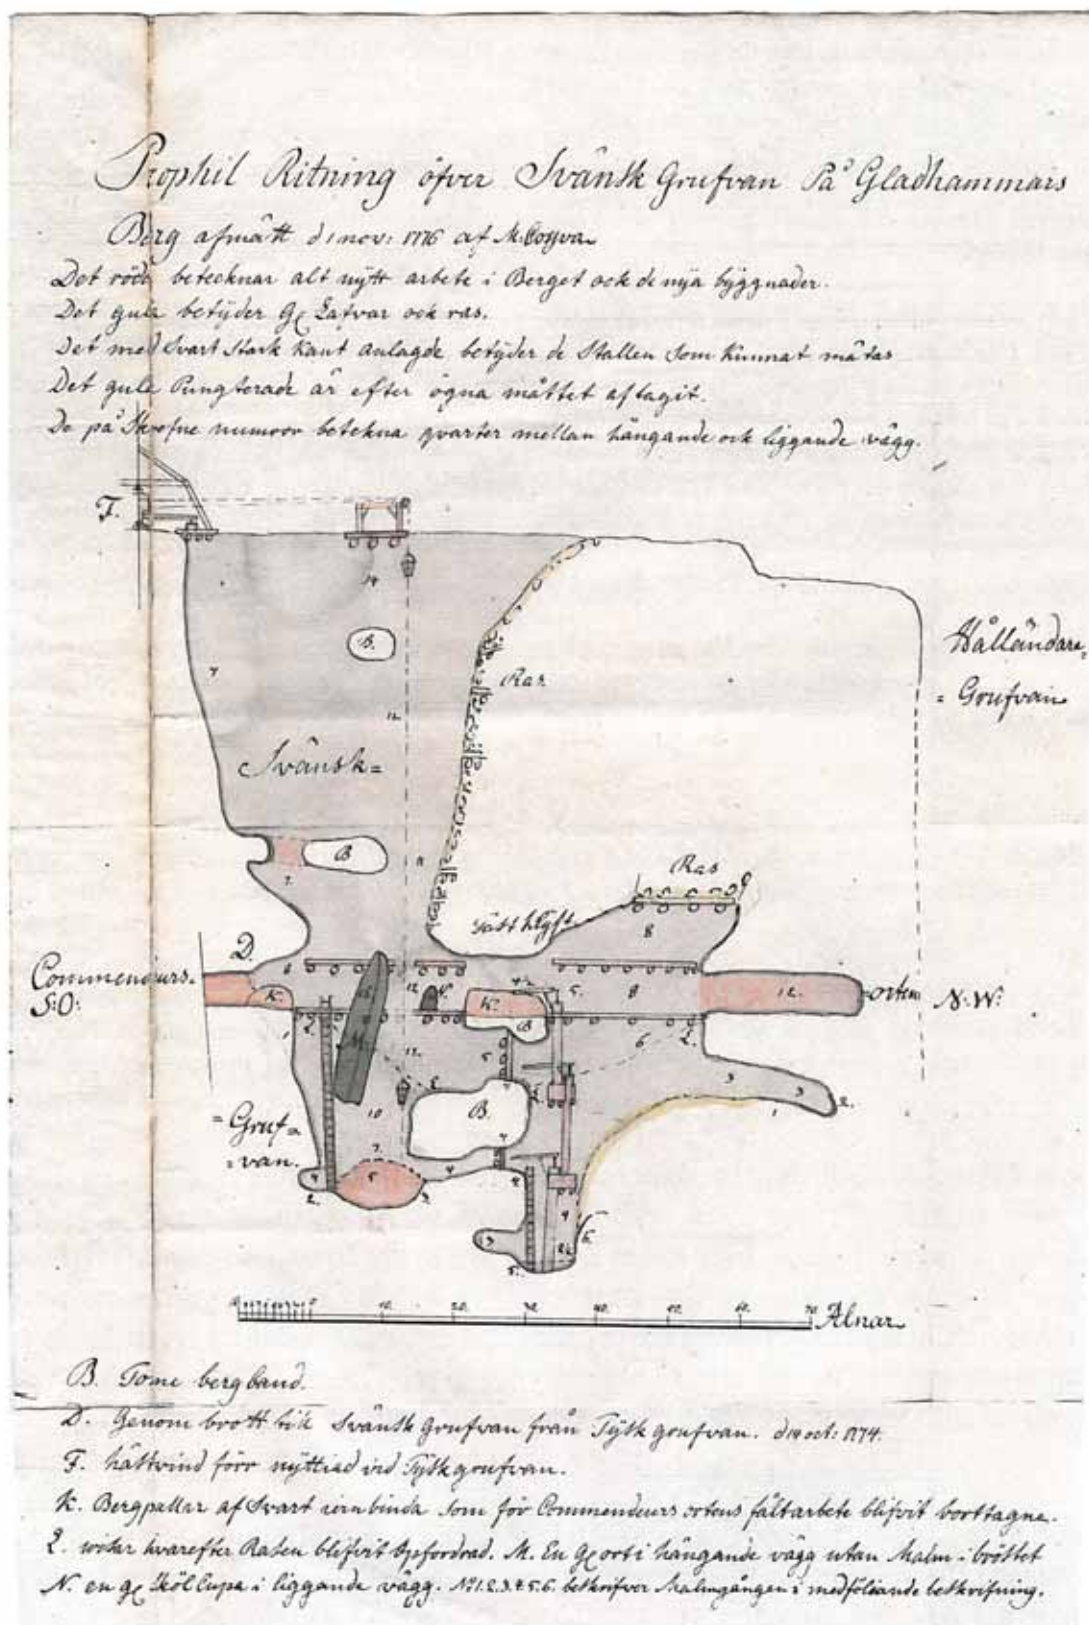 Prophil Ritning öfver Svänsk Grufvan På Gladhammars
Berg afmätt d 1 nov: 1776 af M:
Det röda betecknar alt nÿtt arbete i Berget ock de nÿa bÿggnader.
Det gula betÿder Gl Lafvar ock ras.
Det med Svart Stark Kant anlagde betÿder de Stallen Som Kunnat mätas
Det gula Pungterade är efter ögna måttet aftagit.
De på Skrefne numror betekna qvarter mellan hängande ock liggande vägg.
F.
14
B.
Ras
12.
Hålländare
= Grufvan
Svänsk=
B
11
7.
Ras
8
Tätt klÿft
D.
Commendeurs.
S:O:
K.
12
N.
K.
5.
8
12.
-orten
N:W:
B
M
13.
6
10
B.
3
3
2.
1
=Gruf=
=van.
7.
5
4
2.
3.
4
3
5.
6.
0 10. 20. 30. 40. 50. 60. 70. Alnar
B. Tome bergband.
D. Genom brott till Svänsk Grufvan från Tÿsk grufvan. d 19 oct: 1774.
F. hästvind förr nÿttiad vid Tÿsk grufvan.
K. Bergpallar af Svart iern binda Som för Commendeurs ortens fältarbete blifvit borttagne.
L. wisar hvarefter Rasen blifvit Upfordrad. M. En Gl ort i hängande vägg utan Malm i bröstet
N. en gl Sköl Cupa i liggande vägg. No 1.2.3.4.5.6. beskrifver Malmgången i medföliande beskrifning.